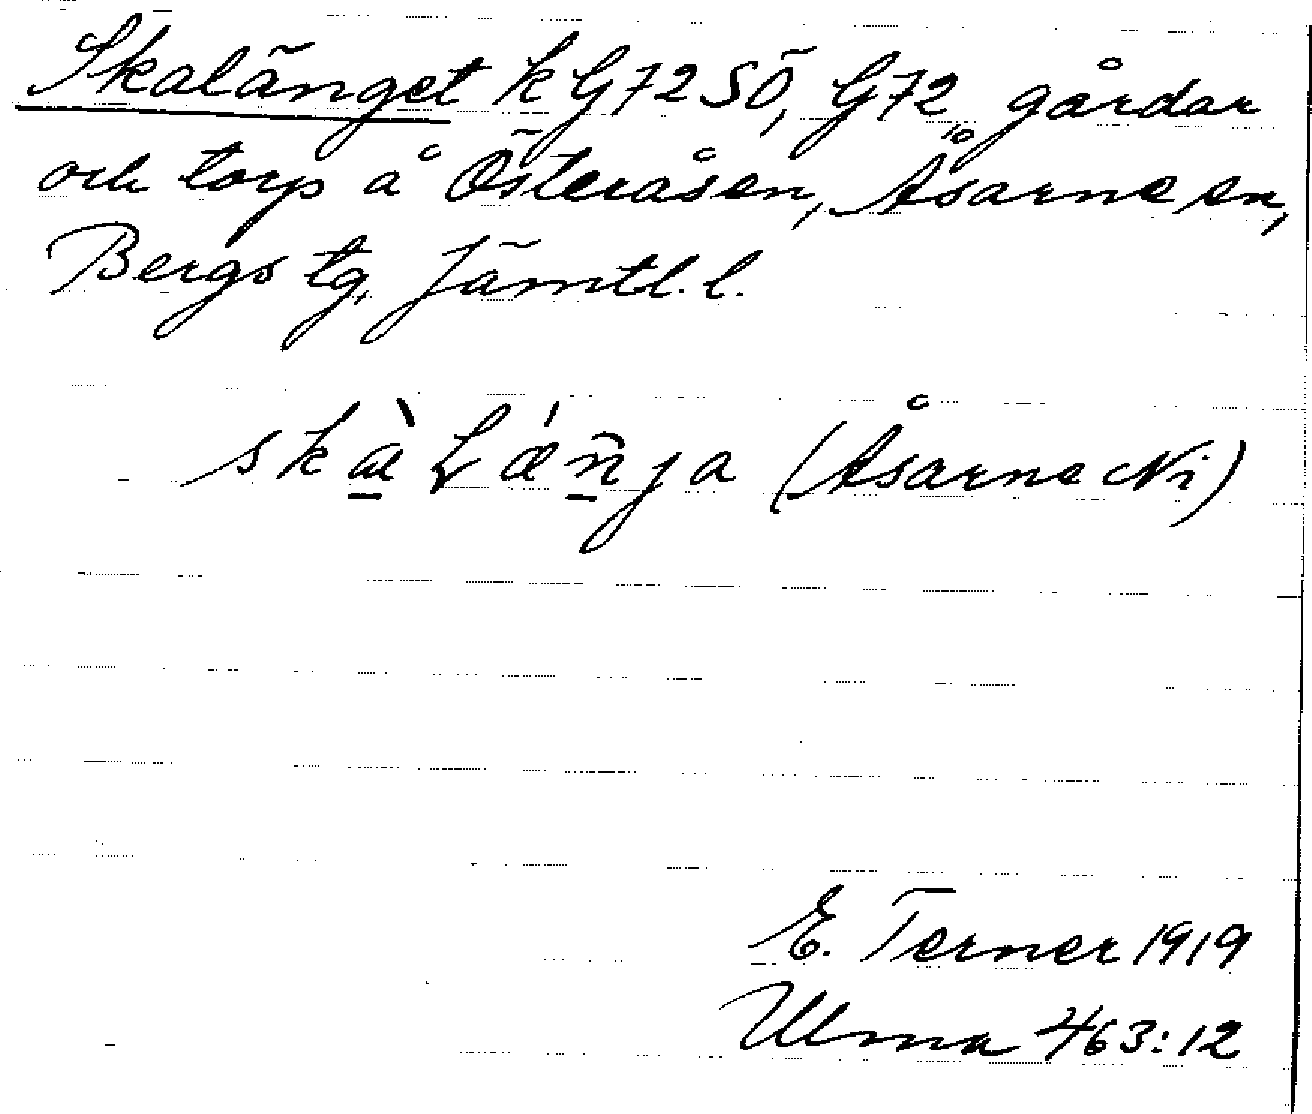 Skalänget k G72SÖ, G72, gårdar
och torp å Österåsen, Åsarne sn,
Bergs tg, Jämtl. l.
skàLáñja (Åsarne Ni)
E. Terner 1919
Ulma 463:12